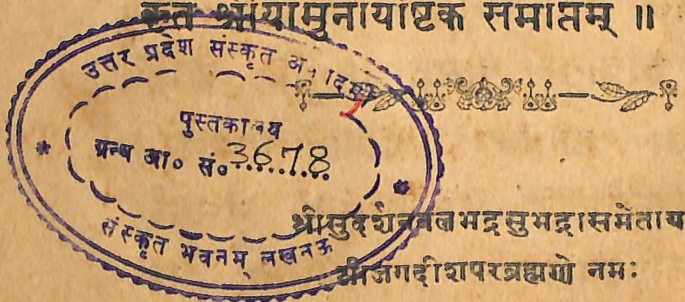 कृतं श्रीयामुनायाष्टकं समाप्तम् ॥
उत्तर प्रदेश संस्कृत
पुस्तकालय
ग्रन्थ आ० सं० 3678
संस्कृत भवनम् लखनऊ
श्रीसुदर्शनबलभद्रसुभद्रासमेताय
श्रीजगदीशपरब्रह्मणे नमः